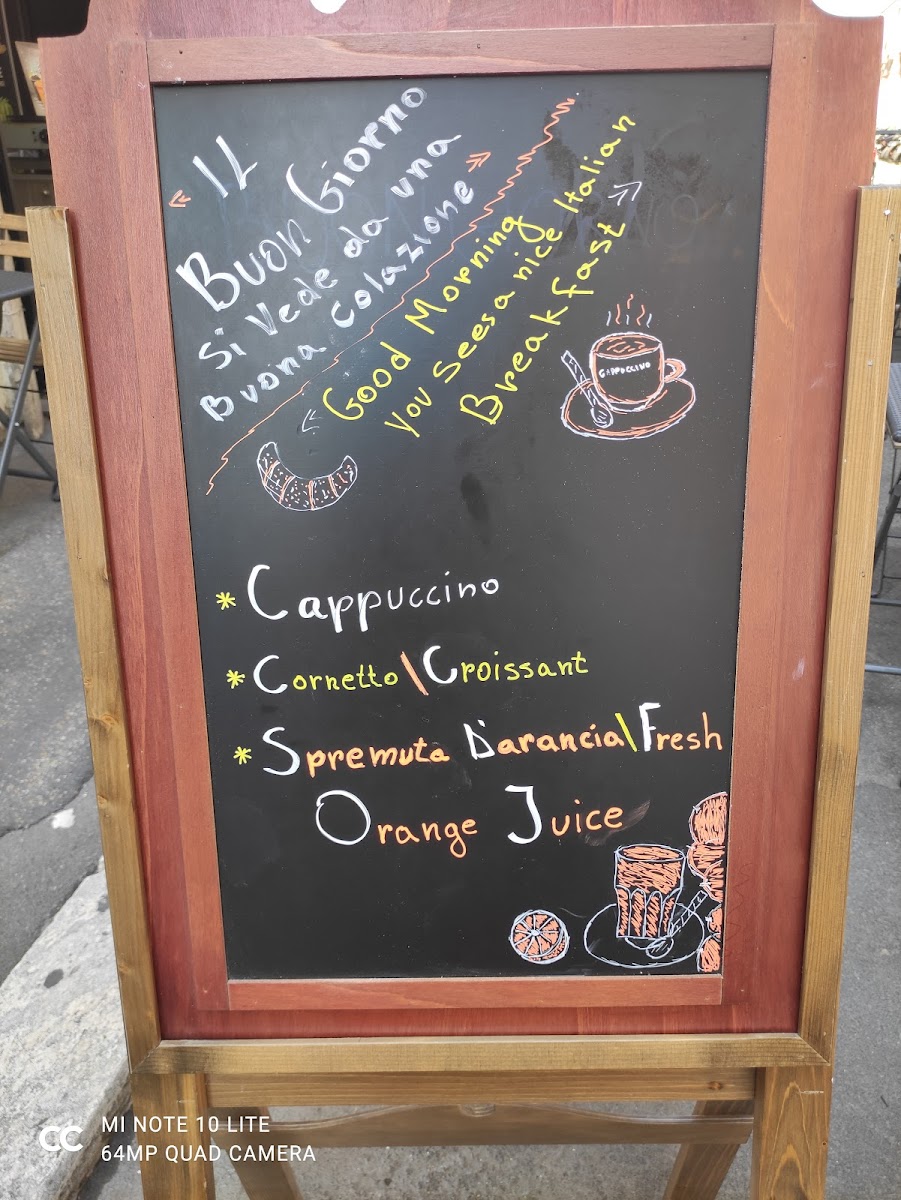 « Il
Buon Giorno »
Si Vede da una
Buona Colazione
« Good Morning
you sees a nice Italian »
Breakfast
CAPPUCCINO
* Cappuccino
* Cornetto \ Croissant
* Spremuta D'arancia \ Fresh
Orange Juice
MI NOTE 10 LITE
64MP QUAD CAMERA